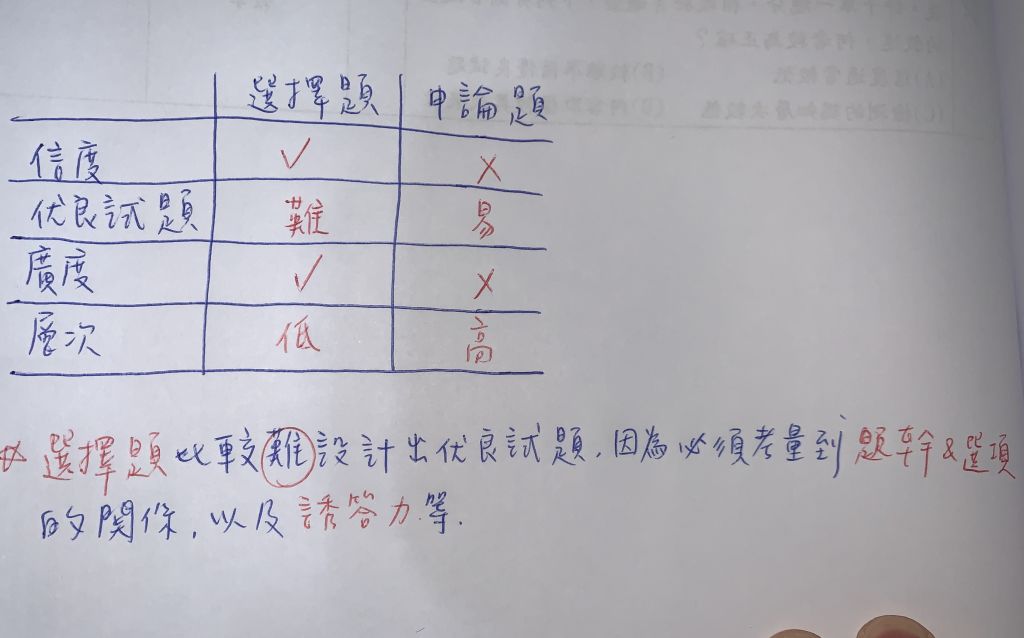 選擇題 申論題
信度 ✓ ✗
优良試題 難 易
廣度 ✓ ✗
層次 低 高
選擇題比較難設計出优良試題，因為必須考量到題幹&選項
的關係，以及誘答力等.